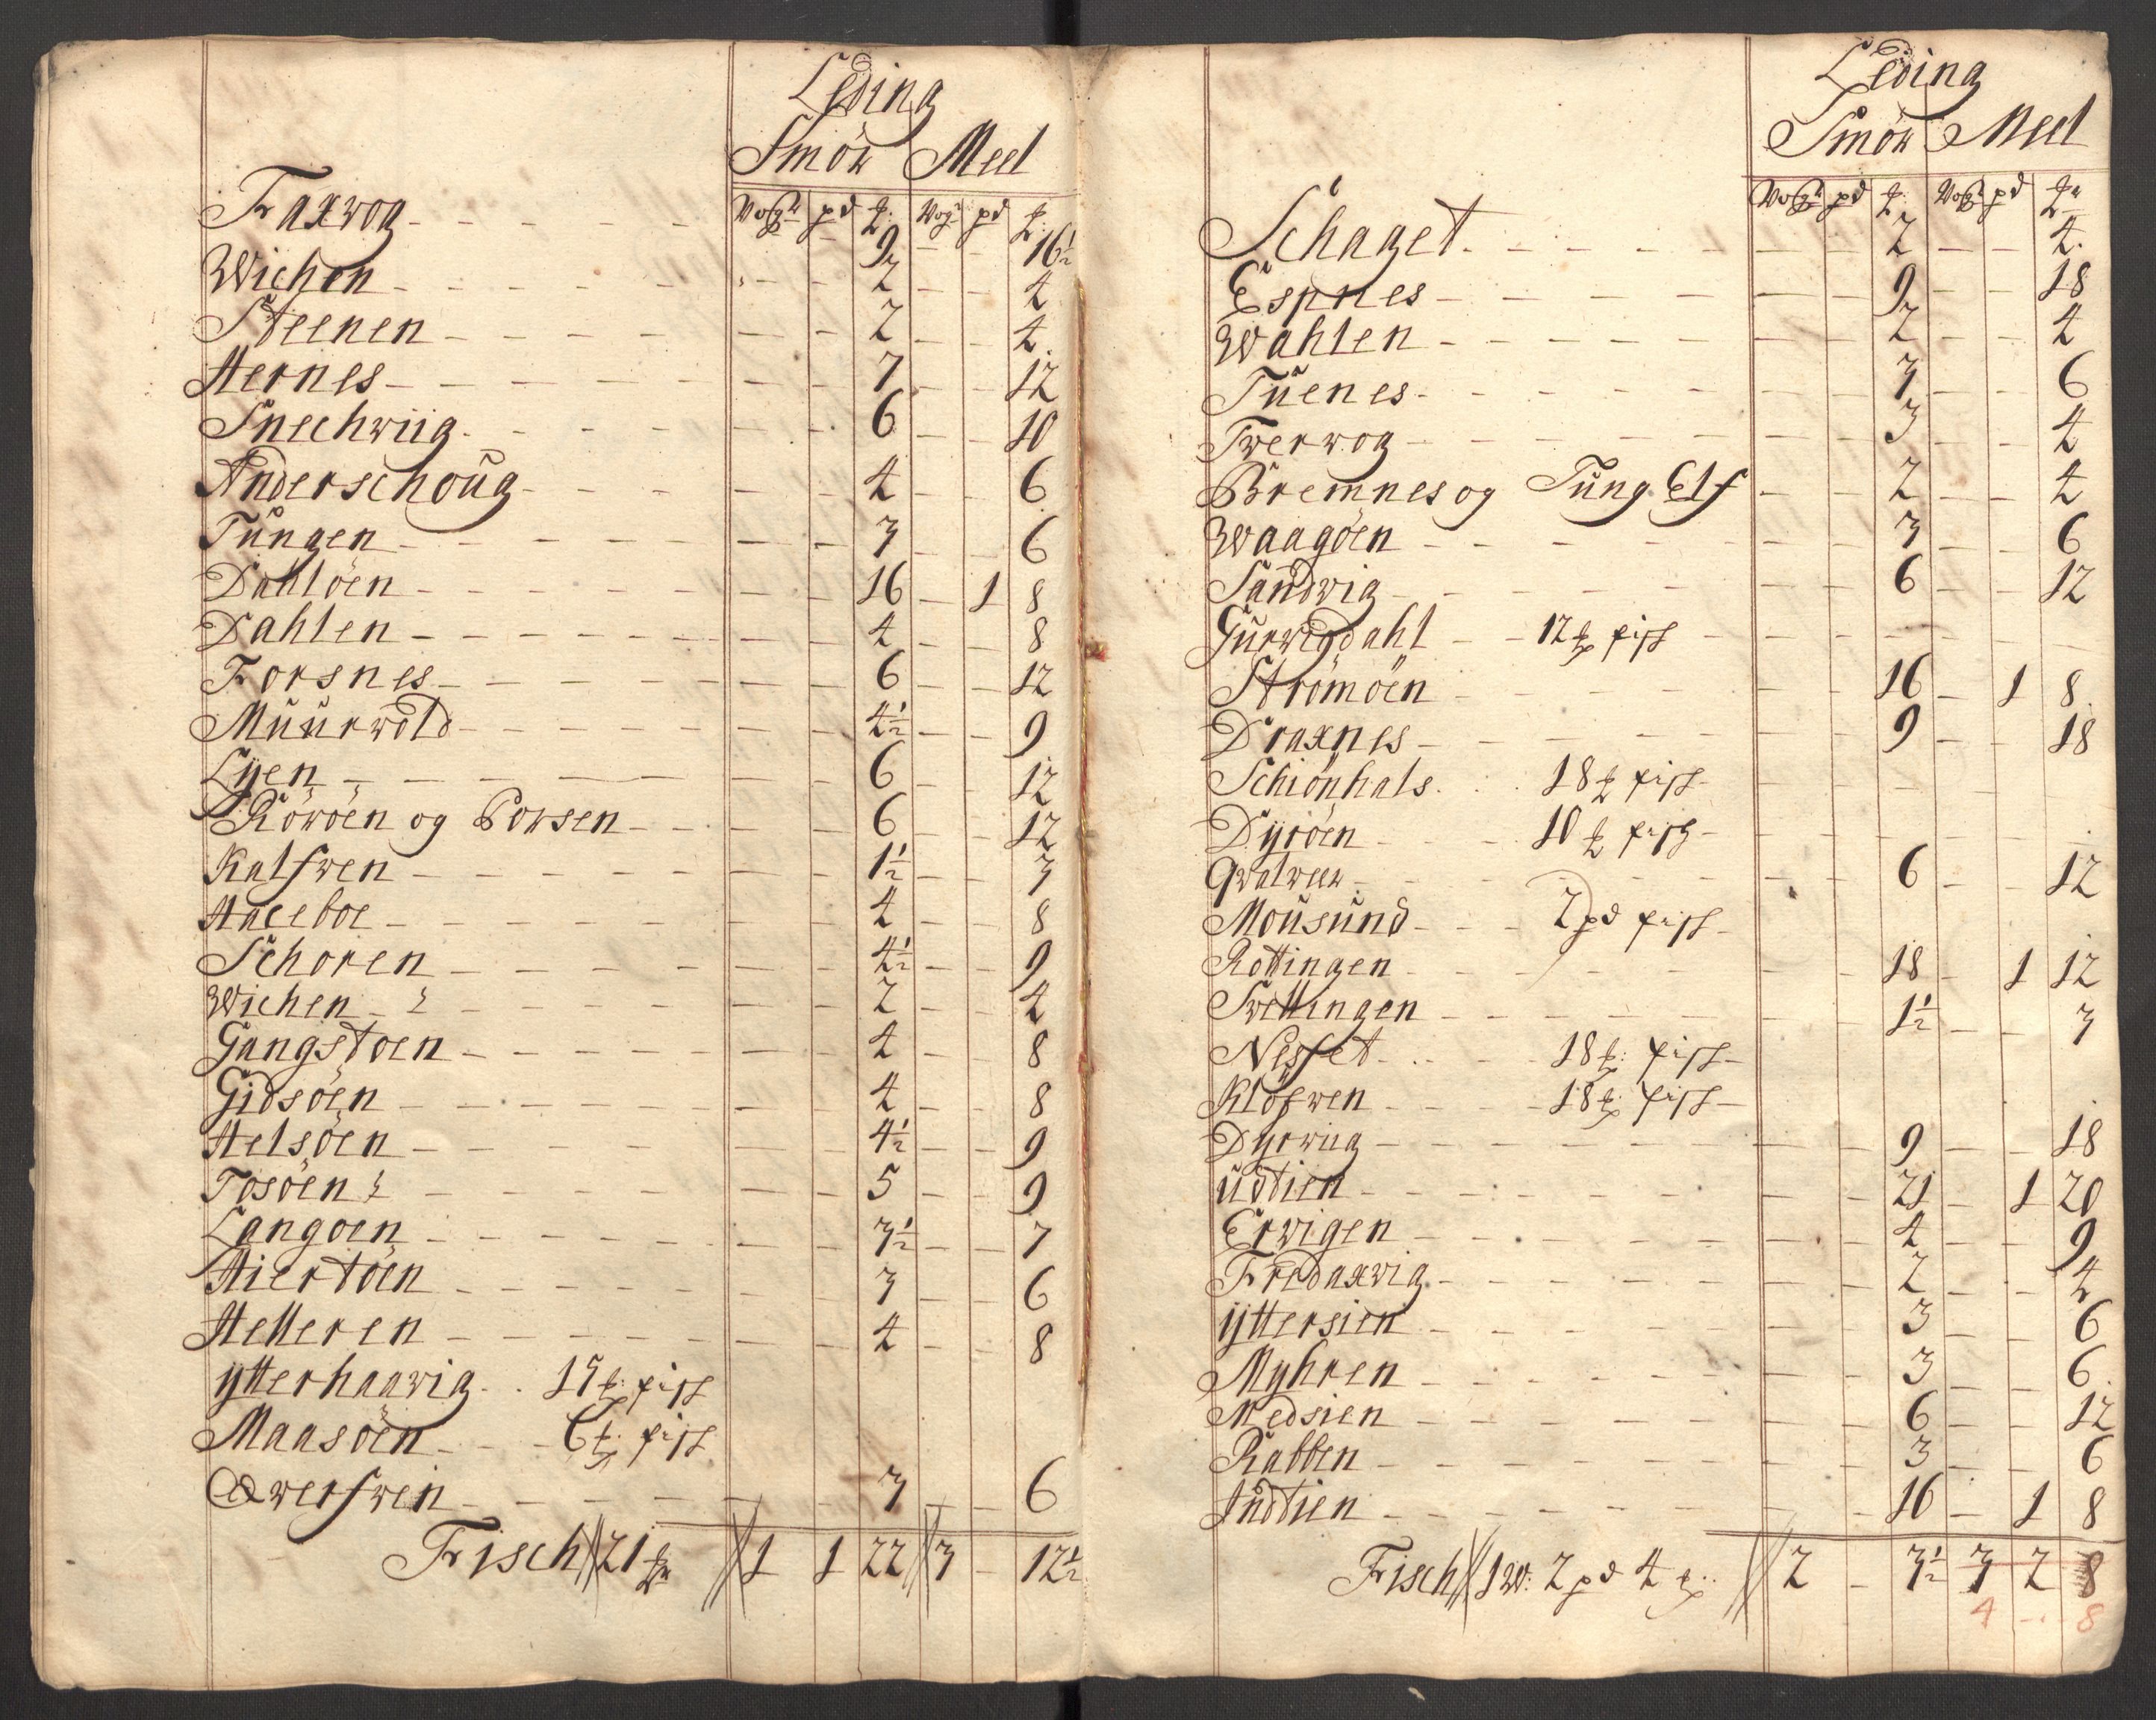 Leding
Smör Meel
Vog pd ℔: Vog pd ℔:
Faxwog - - - - - - 9 - - 16½
Wichen - - - - - 2 - - 4
Steenen - - - - - 2 - - 4
Hernes - - - - - 7 - - 12
Snechwiig - - - - - 6 - - 10
Anderschoug - - - - 4 - - 6
Tungen - - - - - 3 - - 6
Dahlöen - - - - - 16 - 1 8
Dahlen - - - - - 4 - - 8
Forsnes - - - - - 6 - - 12
Muurwold - - - - - 4½ - - 9
Lyen - - - - - 6 - - 12
Röröen og Porsen - - - 6 - - 12
Kalfwen - - - - - 1½ - - 3
Haeeboe - - - - - 4 - - 8
Schoren - - - - - 4½ - - 9
Wichen - - - - - 2 - - 4
Gangstoen - - - - - 4 - - 8
Gidsöen - - - - - 4 - - 8
Helsöen - - - - - 4½ - - 9
Tosöen - - - - - 5 - - 9
Langoen - - - - - 3½ - - 7
Hiertöen - - - - - 3 - - 6
Helleren - - - - - 4 - - 8
ytterhaawig - - 15 ℔: fisk
Maasöen - - - 6 ℔: fisk
Qwerfwen - - - - - 3 - - 6
Fisch 21 ℔ 1 1 22 3 - 12½
Leding
Smör Meel
Vog pd ℔: Vog pd ℔
Schaget - - - - - 2 - - 4
Espnes - - - - - 9 - - 18
Wahlen - - - - - 2 - - 4
Tuenes - - - - - 3 - - 6
Twerwog - - - - - 3 - - 4
Bremnes og Tung Elf - - 2 - - 4
Waagöen - - - - - 3 - - 6
Sandwig - - - - - 6 - - 12
Gurwigdahl - - 12 ℔ fisk - - -
Strömöen - - - - - 16 - 1 8
Draxnes - - - - - 9 - - 18
Schiönhals - - 18 ℔ fisk -
Dyröen - - - 10 ℔ fisk -
Qwalween - - - - - 6 - - 12
Mousund - - - 2 pd fisk -
Rottingen - - - - - 18 - 1 12
Swettingen - - - - - 1½ - - 3
Nesset - - - 18 ℔: fisk -
Klöfwen - - - 18 ℔: fisk -
Dyrwiig - - - - - 9 - - 18
udtien - - - - - 21 - 1 20
Erwigen - - - - - 4 - - 9
Fredaxwig - - - - - 2 - - 4
yttersien - - - - - 3 - - 6
Myhren - - - - - 3 - - 6
Nedsien - - - - - 6 - - 12
Rabben - - - - - 3 - - 6
Indtien - - - - - 16 - 1 8
Fisch 1 W: 2 pd 4 ℔: 2 - 3½ 3 2 8
4 - 8